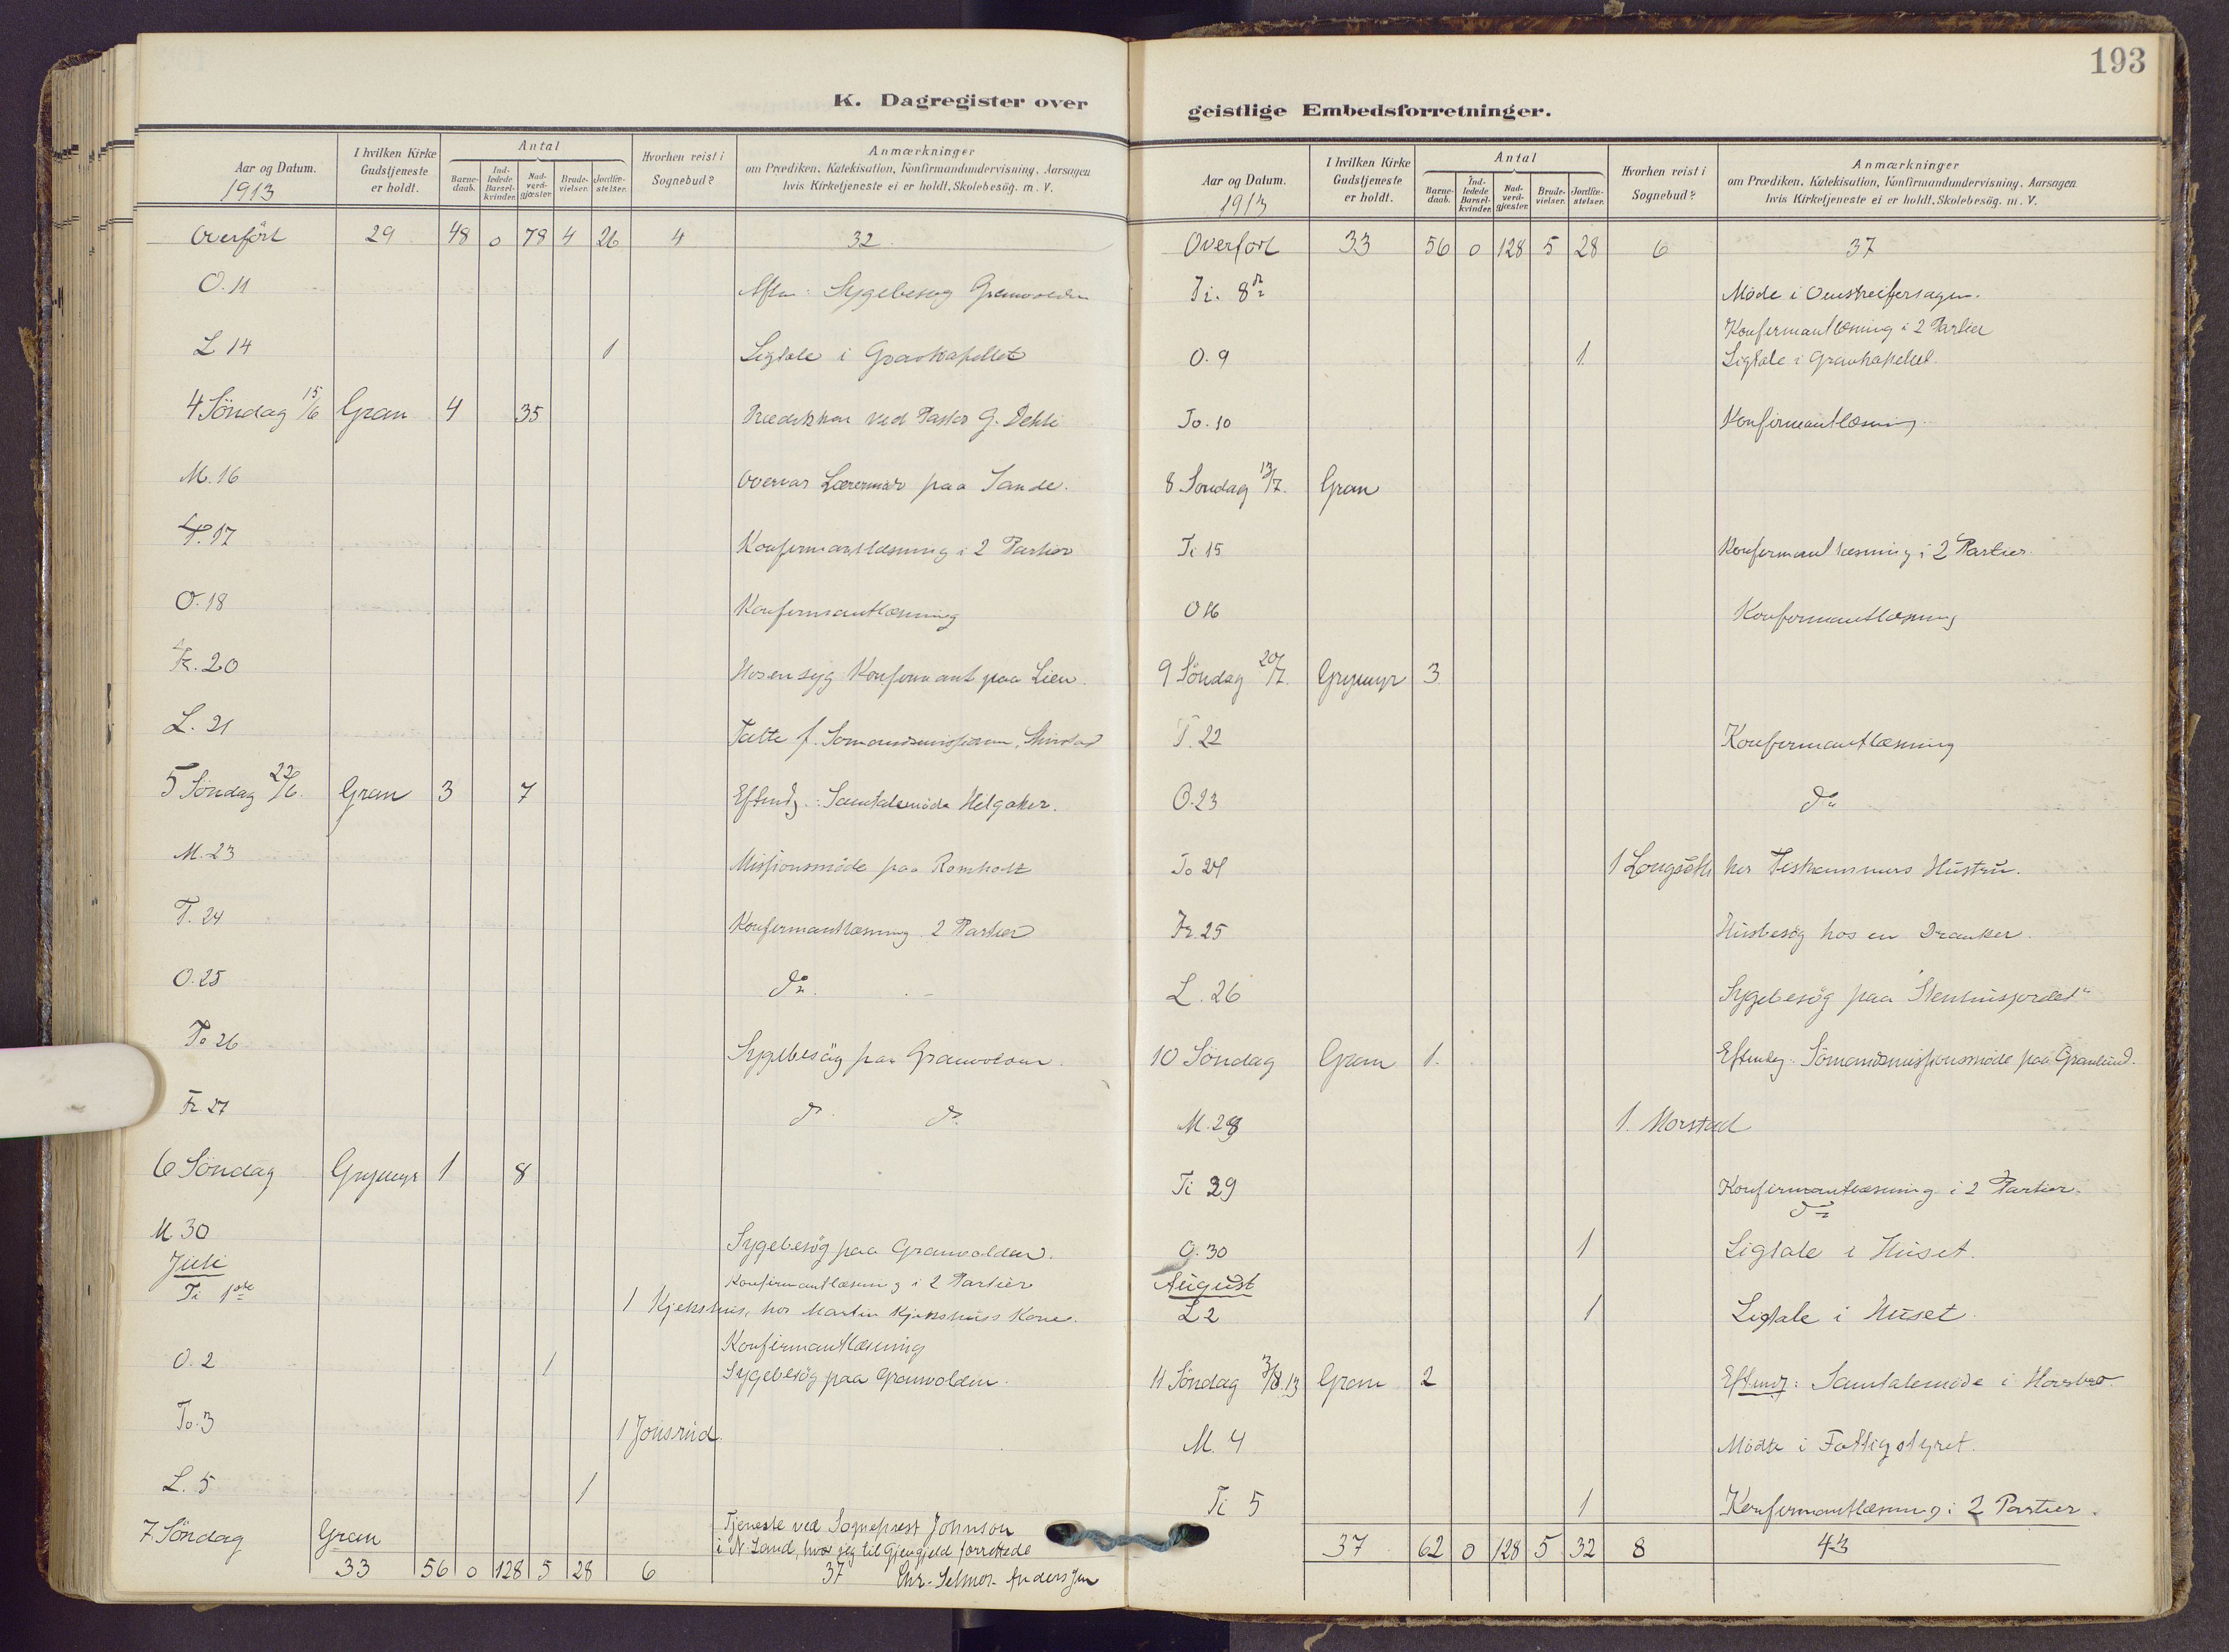 193
K. Dagregister over
geistlige Embedsforretninger.
Aar og Datum.
1913
I hvilken Kirke Gudstjeneste er holdt.
Antal
Barnedaab.
Indledede Barselkvinder.
Nadverdgjæster.
Brudevielser.
Jordfæstelser.
Hvorhen reist i Sognebud?
Anmærkninger
om Prædiken, Katekisation, Konfirmandundervisning, Aarsagen
hvis Kirketjeneste ei er holdt, Skolebesög. m. V.
Overfört 29 48 0 78 4 26 4 32
O. 11 Sygebesøg Granvolden
L 14 1 Ligtale i Gravkapellet
4 Söndag 15/6 Gran 4 35 Prædiken ved Pastor G. Dehli
M. 16 Overvar Lærermøde paa Sande.
T. 17 Konfirmantlæsning i 2 Partier
O. 18 Konfirmantlæsning
Fr. 20 Hos en syg Konfirmant paa Lien.
L. 21
5 Söndag 22/6. Gran 3 7 Eftmdg.: Samtalemöde Helgaker.
M. 23 Missionsmöde paa
T. 24 Konfirmantlæsning 2 Partier
O. 25 do.
To 26 Sygebesög paa Granvolden.
Fr. 27 do. do.
6 Söndag Grymyr 1 8
M 30 Sygebesög paa Granvolden.
Juli
Ti 1ste Konfirmantlæsning i 2 Partier
1 Kjekshus, hos Martin Kjekshuss Kone.
O. 2 1 Konfirmantlæsning
Sygebesög paa Granvolden.
To. 3 1 Jonsrud.
L. 5 1
7. Söndag Gran Tjeneste ved Sogneprest Johnson
i N. Land, hvor jeg til Gjengjeld forrettede
33 56 0 128 5 28 6 37 Chr. Selmer-Anderssen
Aar og Datum.
1913
I hvilken Kirke Gudstjeneste er holdt.
Antal
Barnedaab.
Indledede Barselkvinder.
Nadverdgjæster.
Brudevielser.
Jordfæstelser.
Hvorhen reist i Sognebud?
Anmærkninger
om Prædiken, Katekisation, Konfirmandundervisning, Aarsagen
hvis Kirketjeneste ei er holdt, Skolebesög. m. V.
Overfört 33 56 0 128 5 28 6 37
Ti. 8de Möde i Omstreifersagen.
Konfirmantlæsning i 2 Partier
O. 9 1 Ligtale i Gravkapellet.
To. 10 Konfirmantlæsning.
8 Söndag 13/7. Gran
Ti 15 Konfirmantlæsning i 2 Partier.
O 16 Konfirmantlæsning
9 Söndag 20/7. Grymyr 3
T. 22 Konfirmantlæsning
O. 23 do
To 24 1 hos Hustru.
Fr. 25 Husbesög hos en Dranker.
L. 26 Sygebesög paa "Stenhusjordet"
10 Söndag Gran 1. Eftmdg. Sömandsmissionsmöde paa Granlund.
M. 28 1. Morstad
Ti 29 Konfirmantlæsning i 2 Partier.
do
O. 30 1 Ligtale i Huset.
August
L 2 1 Ligtale i Huset.
11 Söndag 3/8.13 Gran 2 Eftmdg: Samtalemöde i
M. 4 Mödte i Fattigstyret.
Ti 5 1 Konfirmantlæsning i 2 Partier.
37 62 0 128 5 32 8 43